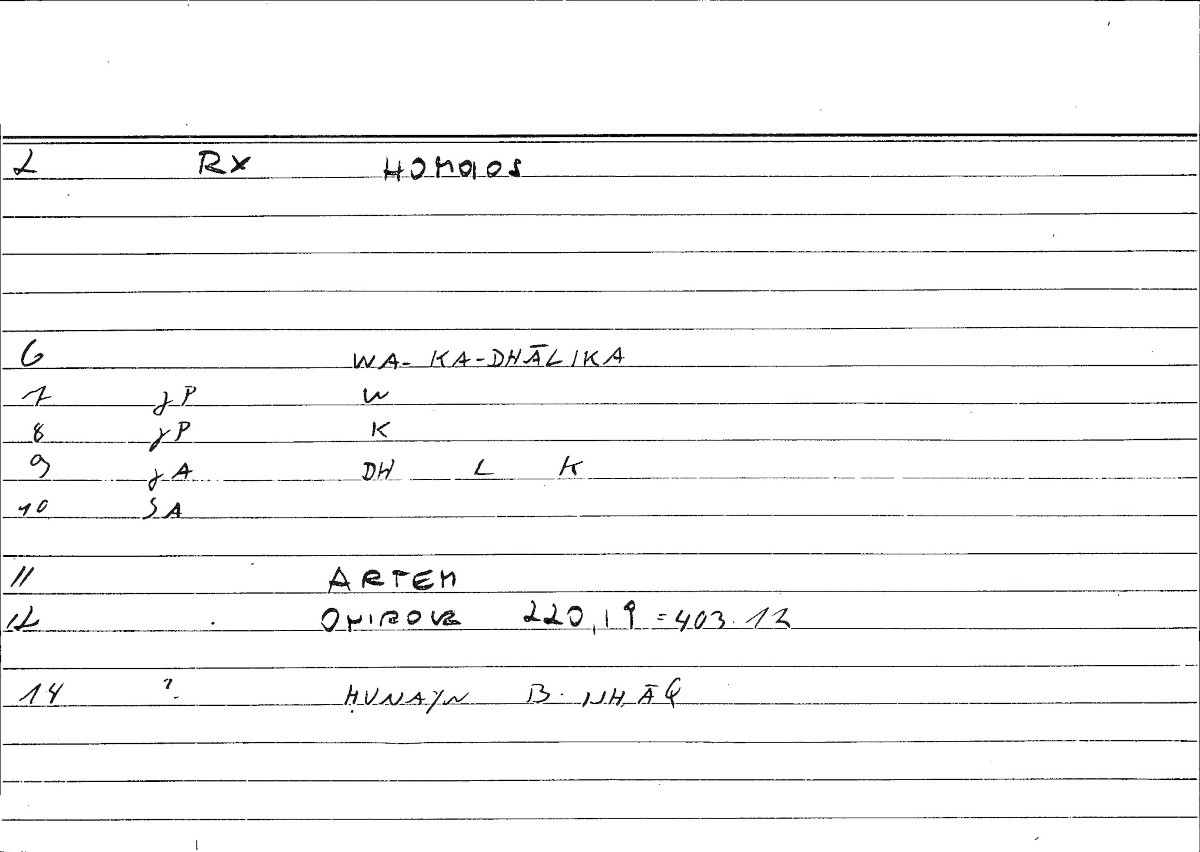 2 RX HOMOIOS
6 WA-KA-DHĀLIKA
7 γP W
8 γP K
9 γA DH L K
10 SA
11 ARTEM
12 220,19=403.12
14 ? ḤUNAYN B.